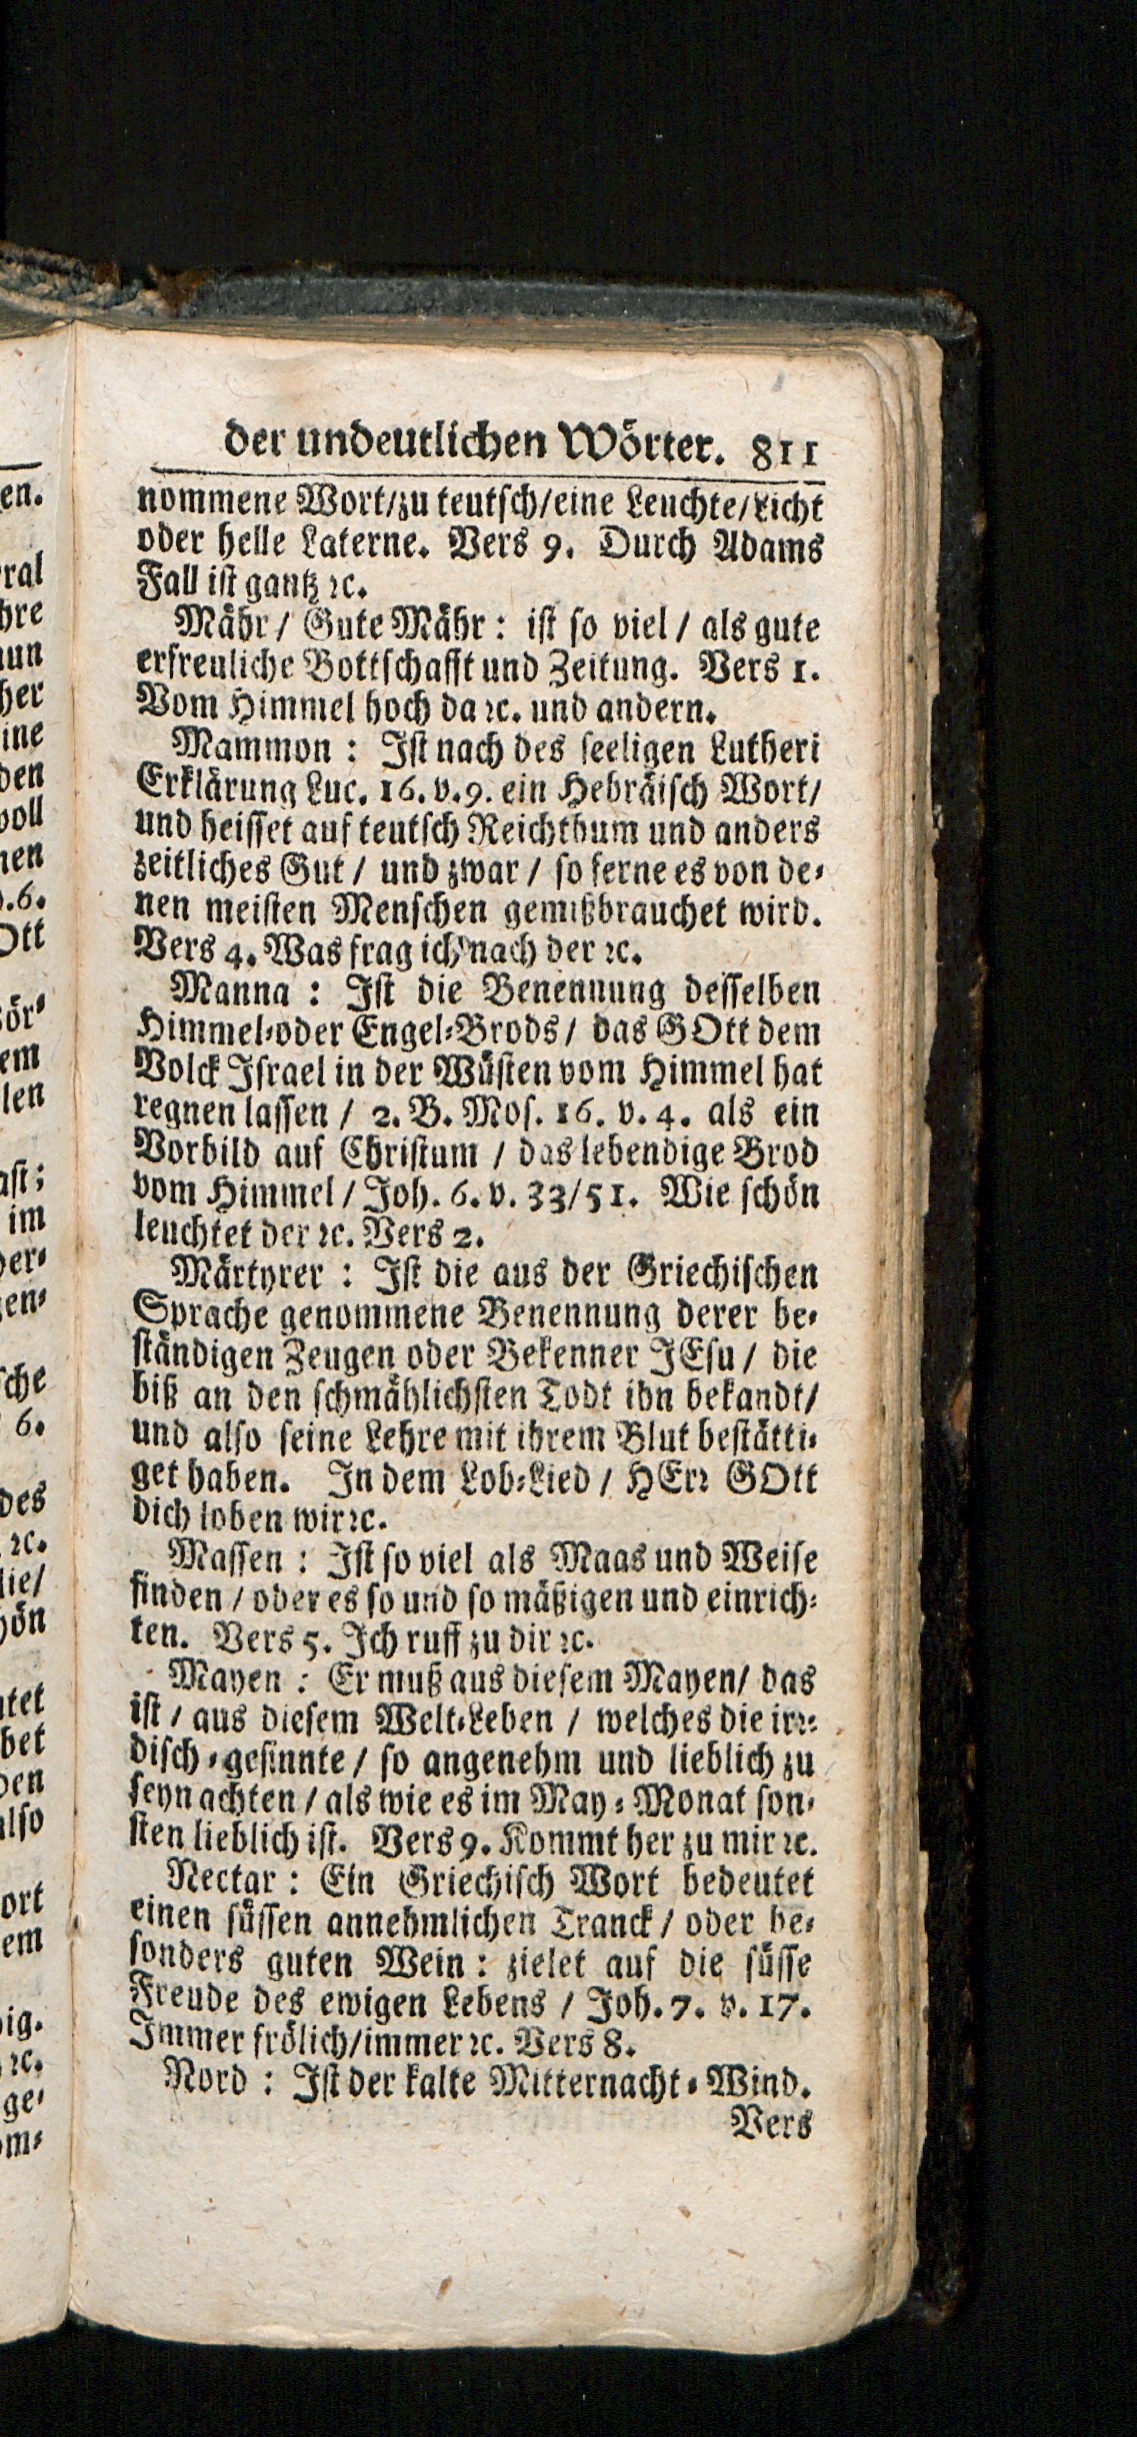 der undeutlichen Wörter. 811
nommene Wort/zu teutsch/eine Leuchte/Licht
oder helle Laterne. Vers 9. Durch Adams
Fall ist gantz ꝛc.
Mähr / Gute Mähr: ist so viel / als gute
erfreuliche Bottschafft und Zeitung. Vers 1.
Vom Himmel hoch da ꝛc. und andern.
Mammon : Ist nach des seeligen Lutheri
Erklärung Luc. 16. v. 9. ein Hebräisch Wort/
und heisset auf teutsch Reichthum und anders
zeitliches Gut / und zwar / so ferne es von de-
nen meisten Menschen gemißbrauchet wird.
Vers 4. Was frag ich nach der ꝛc.
Manna : Ist die Benennung desselben
Himmel-oder Engel-Brods / das GOtt dem
Volck Israel in der Wüsten vom Himmel hat
regnen lassen / 2. B. Mos. 16. v. 4. als ein
Vorbild auf Christum / das lebendige Brod
vom Himmel / Joh. 6. v. 33/51. Wie schön
leuchtet der ꝛc. Vers 2.
Märtyrer : Ist die aus der Griechischen
Sprache genommene Benennung derer be-
ständigen Zeugen oder Bekenner JEsu / die
biß an den schmählichsten Todt ihn bekandt/
und also seine Lehre mit ihrem Blut bestätti-
get haben. In dem Lob-Lied / HErꝛ GOtt
dich loben wir ꝛc.
Massen : Ist so viel als Maas und Weise
finden / oder es so und so mäßigen und einrich-
ten. Vers 5. Ich ruff zu dir ꝛc.
Mayen : Er muß aus diesem Mayen/ das
ist / aus diesem Welt-Leben / welches die irꝛ-
disch-gesinnte / so angenehm und lieblich zu
seyn achten / als wie es im May-Monat son-
sten lieblich ist. Vers 9. Kommt her zu mir ꝛc.
Nectar : Ein Griechisch Wort bedeutet
einen süssen annehmlichen Tranck / oder be-
sonders guten Wein : zielet auf die süsse
Freude des ewigen Lebens / Joh. 7. v. 17.
Immer frölich/immer ꝛc. Vers 8.
Nord : Ist der kalte Mitternacht-Wind.
Vers